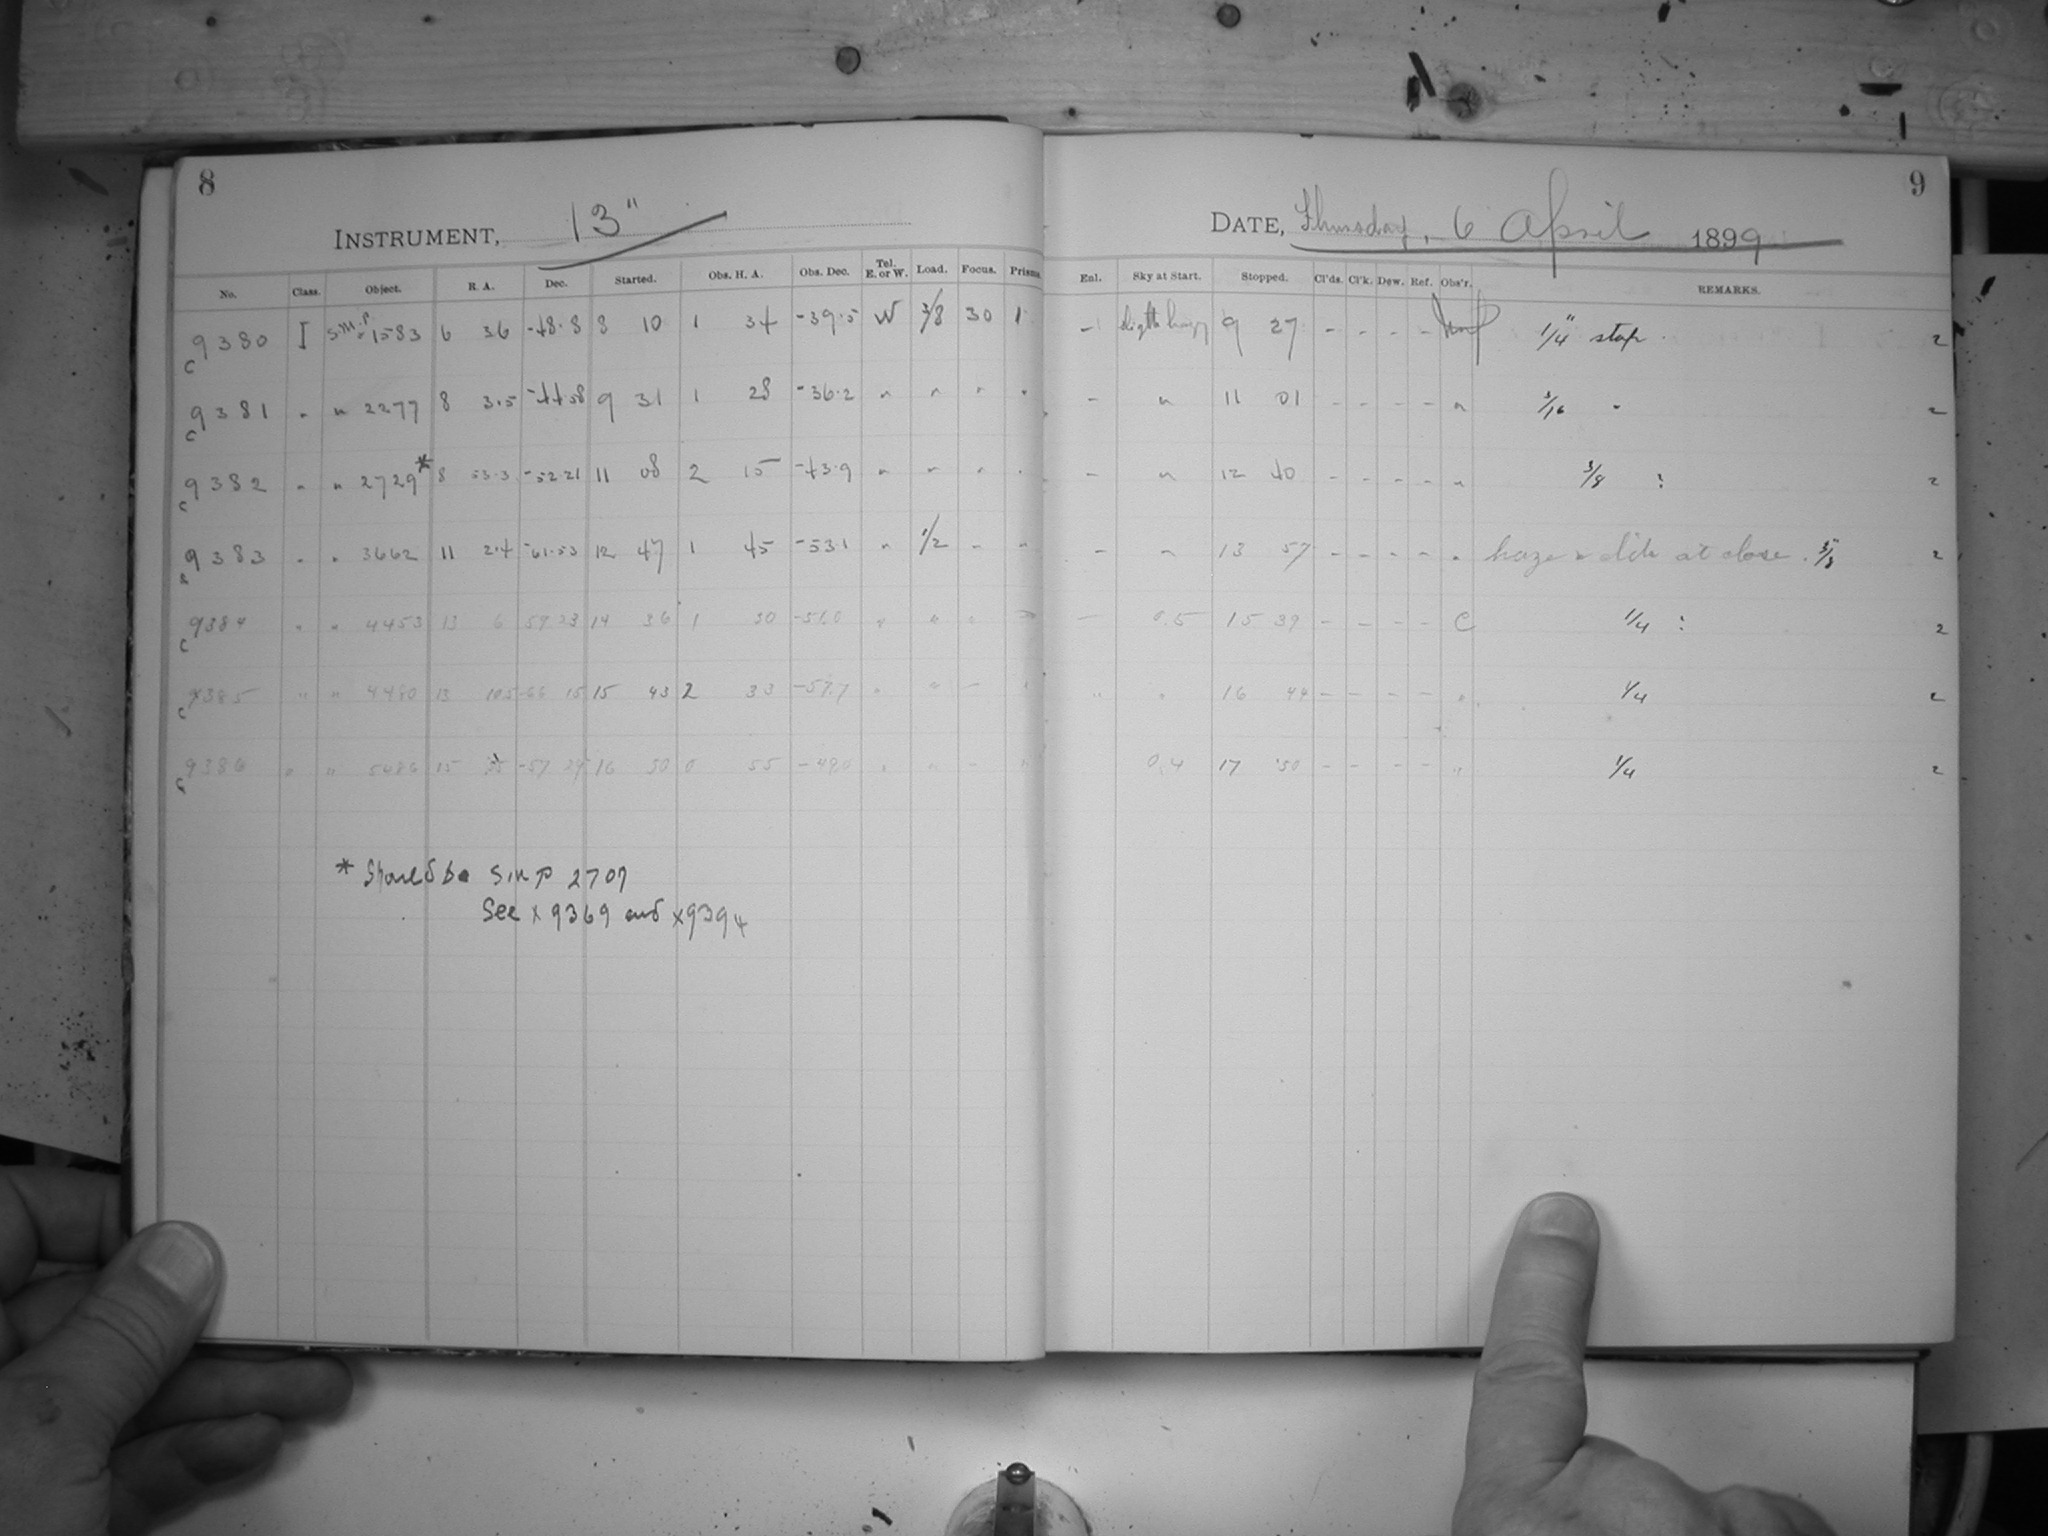 8
INSTRUMENT, 13"
No. Class. Object. R. A. Dec. Started. Obs. H. A. Obs. Dec. Tel. E. or W. Load. Focus. Prisms.
9380 I S.M.P. 1583 6 36 -48.8 8 10 1 34 -39.5 W 3/8 30 1
c
9381 " " 2277 8 3.5 -44 58 9 31 1 28 -36.2 " " " "
c
9382 " " 2729* 8 53.3 -52 21 11 08 2 15 -43.9 " " " "
c
9383 " " 3662 11 24 -61.53 12 47 1 45 -53.1 " 1/2 " "
9384 " " 4453 13 6 59 23 14 36 1 30 -51.0 " " "
c
9385 " " 4480 13 15 15 43 2 33 -57.7 " " -
c
9386 " " 5686 15 -57 29 16 50 0 55 -49.0 " " - "
* Should be SMP 2707
See x 9369 and x9394
9
DATE, Thursday, 6 April 1899
Enl. Sky at Start. Stopped. Cl'ds. Cl'k. Dew. Ref. Obs'r. REMARKS.
- slight hazy 9 27 - - - - 1/4" stop. 2
- " 11 01 - - - - " 3/16 " 2
- " 12 40 - - - - " 3/8 : 2
- " 13 57 - - - - " haze at close. 2
- 0.5 15 39 - - - - C 1/4 : 2
" " 16 44 - - - - " 1/4 2
0.4 17 50 - - - - " 1/4 2